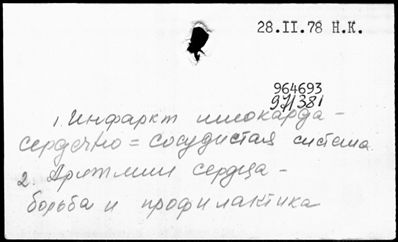 28.II.78 Н.К.
964693
97/381
1. Инфаркт миокарда -
сердечно = сосудистая система
2. Аритмии сердца -
борьба и профилактика